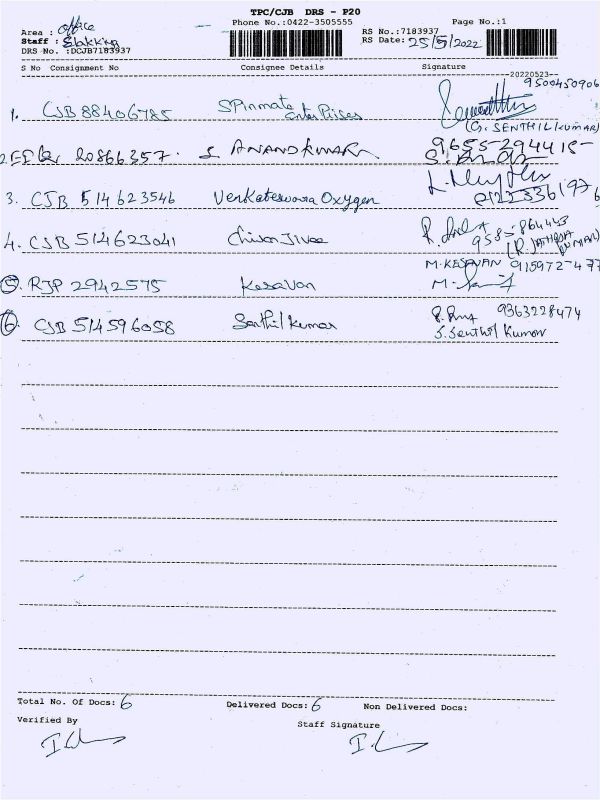 TPC/CJB DRS - P20
Phone No.:0422-3505555 Page No.:1
Area : office
Staff :
DRS No. :DCJB7183937
RS No.:7183937
RS Date: 25/5/2022
S No Consignment No Consignee Details Signature
--20220523--
9500450906
1. CJB 88406785 SPinmate Enter Prises
(G. SENTHILKUMAR)
2. 20866357. S ANANDKUMAR
3. CJB 514623546 Venkateswara Oxygen
4. CJB 514623041
M.KESAVAN 915972-477
5. RJP 2942575 Kesavan
6. CJB 514596058 Senthil Kumar 9363228474
S. Senthil Kumar
Total No. Of Docs: 6 Delivered Docs: 6 Non Delivered Docs:
Verified By Staff Signature